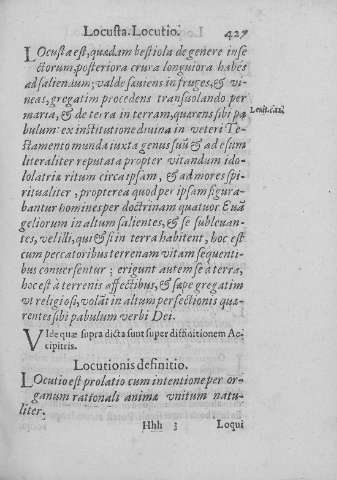 Locusta. Locutio. 427
LOcusta est, quædam bestiola de genere inse
ctorum, posteriora crura longiora habẽs
ad saliendum; valde sæuiens in fruges, & vi-
neas, gregatim procedens transuolando per
maria, & de terra in terram, quærens sibi pa
bulum: ex institutione diuina in veteri Te-
stamento munda iuxta genus suũ & ad esum
literaliter reputata propter vitandum ido-
lolatriæ ritum circa ipsam, & ad mores spi-
ritualiter, propterea quod per ipsam figura-
bantur homines per doctrinam quatuor Euã
geliorum in altum salientes, & se subleuan-
tes, velilli, qui & si in terra habitent, hoc est
cum peccatoribus terrenam vitam sequenti-
bus conuersentur; erigunt autem se à terra,
hoc est à terrenis affectibus, & sæpe gregatim
vt religiosi, volãt in altum perfectionis quæ-
rentes sibi pabulum verbi Dei.
VIde quæ supra dicta sunt super diffinitionem Ac-
cipitris.
Locutionis definitio.
LOcutio est prolatio cum intentione per or-
ganum rationalis animæ vnitum natu-
liter.
Hhh 3 Loqui